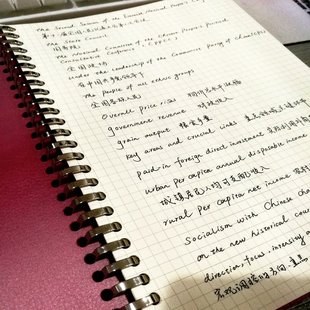 The Second Session of the National People's Cong
The State Council
国务院
The National Committee of the Chinese People's Political
Consultative Conference, CPPCC
全国政协
Under the leadership of the Communist Party of China
在中国共产党领导下
The people of all ethnic groups
全国各族人民
Overall price rises
government revenue 财政收入
grain output 粮食产量
key areas and crucial links
paid-in foreign direct investment
urban per capita annual disposable income
城镇居民人均可支配收入
rural per capita net income
Socialism with Chinese cha
on the new historical cour
direction, focus, intensity a
宏观调控的方向、重点